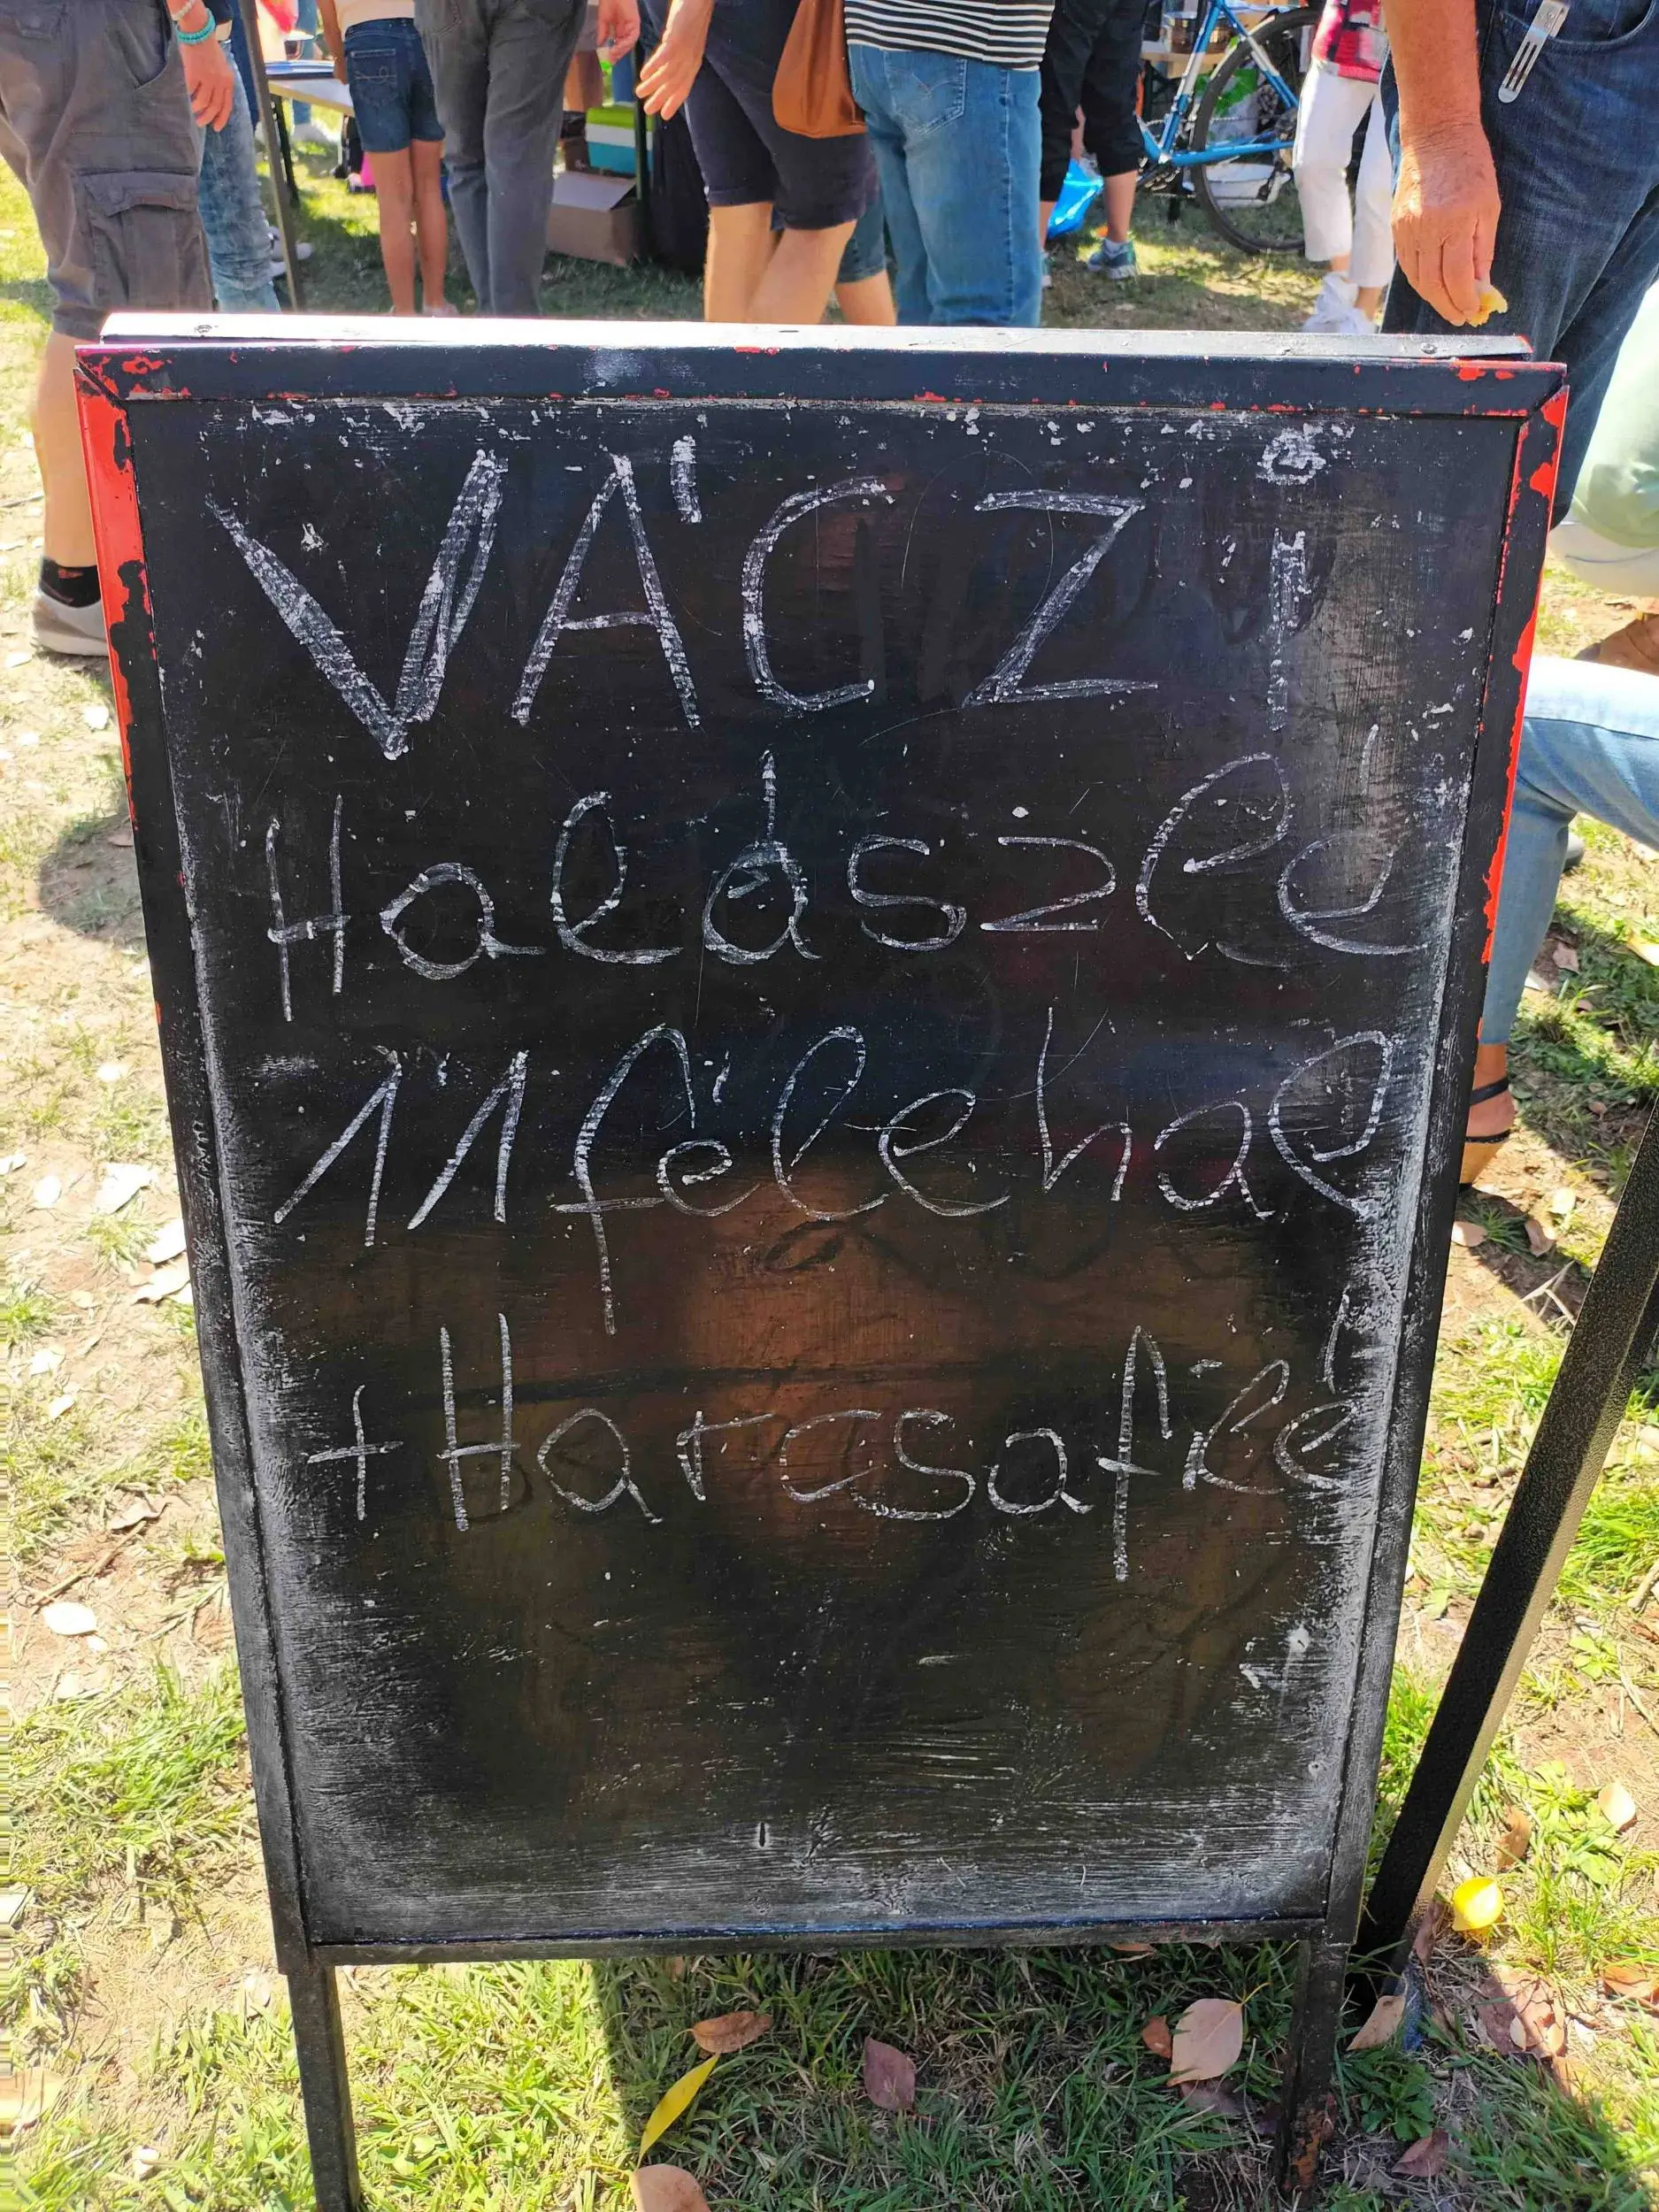 VÁCZI
Halászlé
11 féle hal
+ Harcsafilé